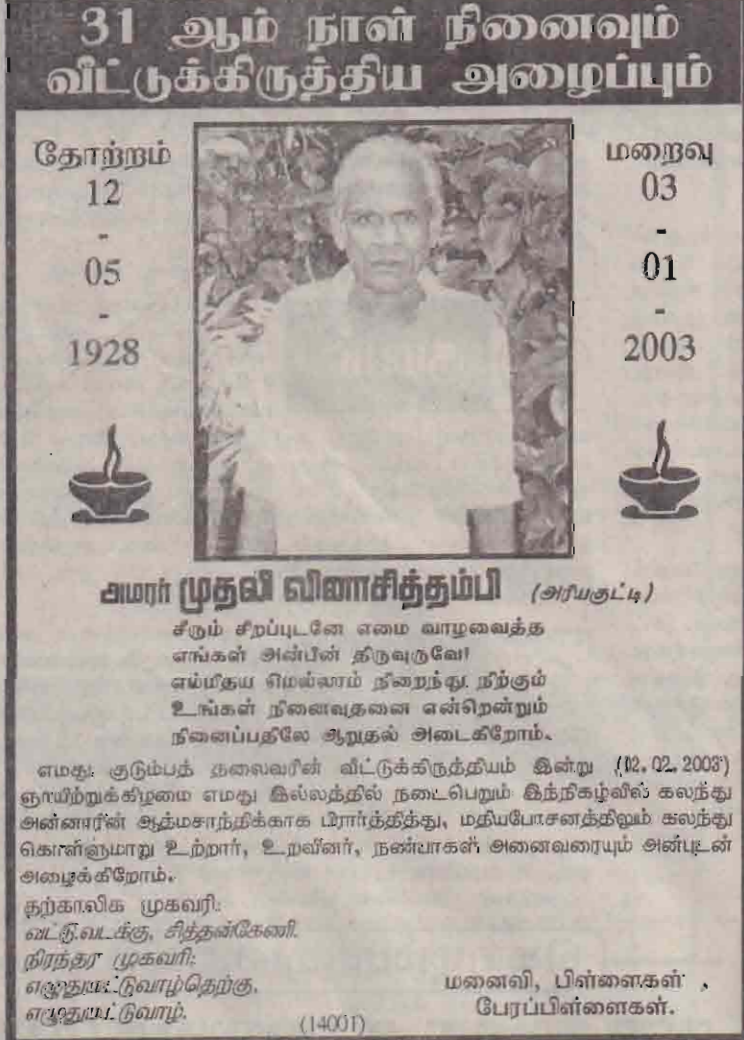 31 ஆம் நாள் நினைவும்
வீட்டுக்கிருத்திய அழைப்பும்
தோற்றம்
12
-
05
-
1928
மறைவு
03
-
01
-
2003
அமரர் முதலி வினாசித்தம்பி (அரியகுட்டி)
சீரும் சிறப்புடனே எமை வாழவைத்த
எங்கள் அன்பின் திருவுருவே!
எம்மிதய மெல்லாம் நிறைந்து நிற்கும்
உங்கள் நினைவுதனை என்றென்றும்
நினைப்பதிலே ஆறுதல் அடைகிறோம்.
எமது குடும்பத் தலைவரின் வீட்டுக்கிருத்தியம் இன்று (02.02.2003)
ஞாயிற்றுக்கிழமை எமது இல்லத்தில் நடைபெறும் இந்நிகழ்வில் கலந்து
அன்னாரின் ஆத்மசாந்திக்காக பிரார்த்தித்து, மதியபோசனத்திலும் கலந்து
கொள்ளுமாறு உற்றார், உறவினர், நண்பர்கள் அனைவரையும் அன்புடன்
அழைக்கிறோம்.
தற்காலிக முகவரி:
வட்டு.வடக்கு, சித்தன்கேணி.
நிரந்தர முகவரி:
எழுதுமட்டுவாழ்தெற்கு,
எழுதுமட்டுவாழ்.
மனைவி, பிள்ளைகள் ,
பேரப்பிள்ளைகள்.
(14001)